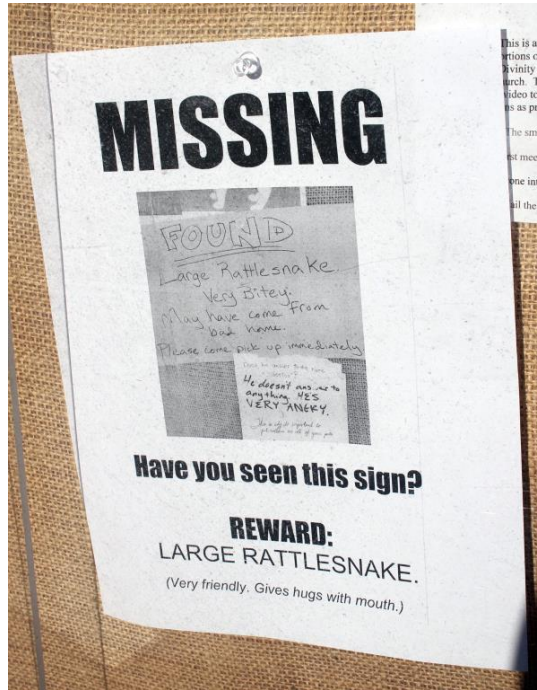 MISSING
FOUND
Large Rattlesnake
Very Bitey.
May have come from
bad home.
Please come pick up immediately
He doesn't answer to
anything. HE'S
VERY ANGRY.
Have you seen this sign?
REWARD:
LARGE RATTLESNAKE.
(Very friendly. Gives hugs with mouth.)
This is a
Divinity
video to
as pr
The sm
mee
one int
the